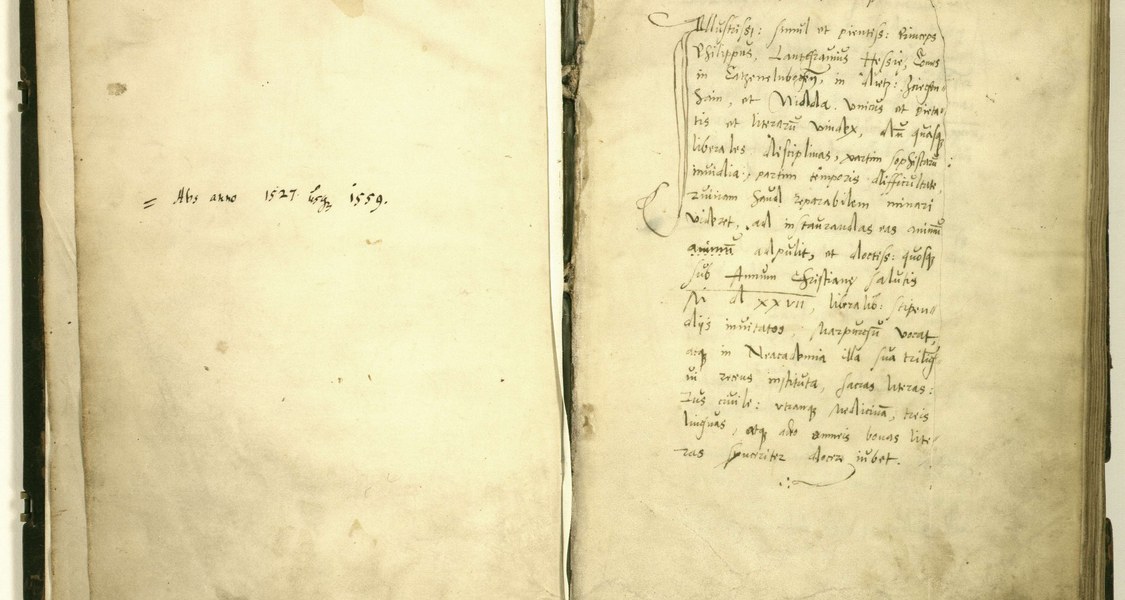 = Abs anno 1527 bis 1559.
Illustriss: simul et pientiss: Princeps
Philippus, Lantgravius Hessie, Comes
in Catzenelnbogen, in Dietz: Ziegen-
hain, et Nidda. Unicus et pieta-
tis et literarū vindex, dū quasq
liberales disciplinas, partim sophistarū
invidia, partim temporis difficultate,
ruinam haud reparabilem minari
videret, ad instaurandas eas animū
animū adpulit, et doctiss: quosq
sub Annum Christianę salutis
M D XXVII, liberalib: stipen-
dijs invitatos, Marpurgū vocat,
atq in Neacademia illa sua trilīg
ui recens instituta, sacras literas:
Ius civile: utranq Medicinā, treis
linguas, atq adeo omneis bonas lite-
ras synceriter docere iubet.